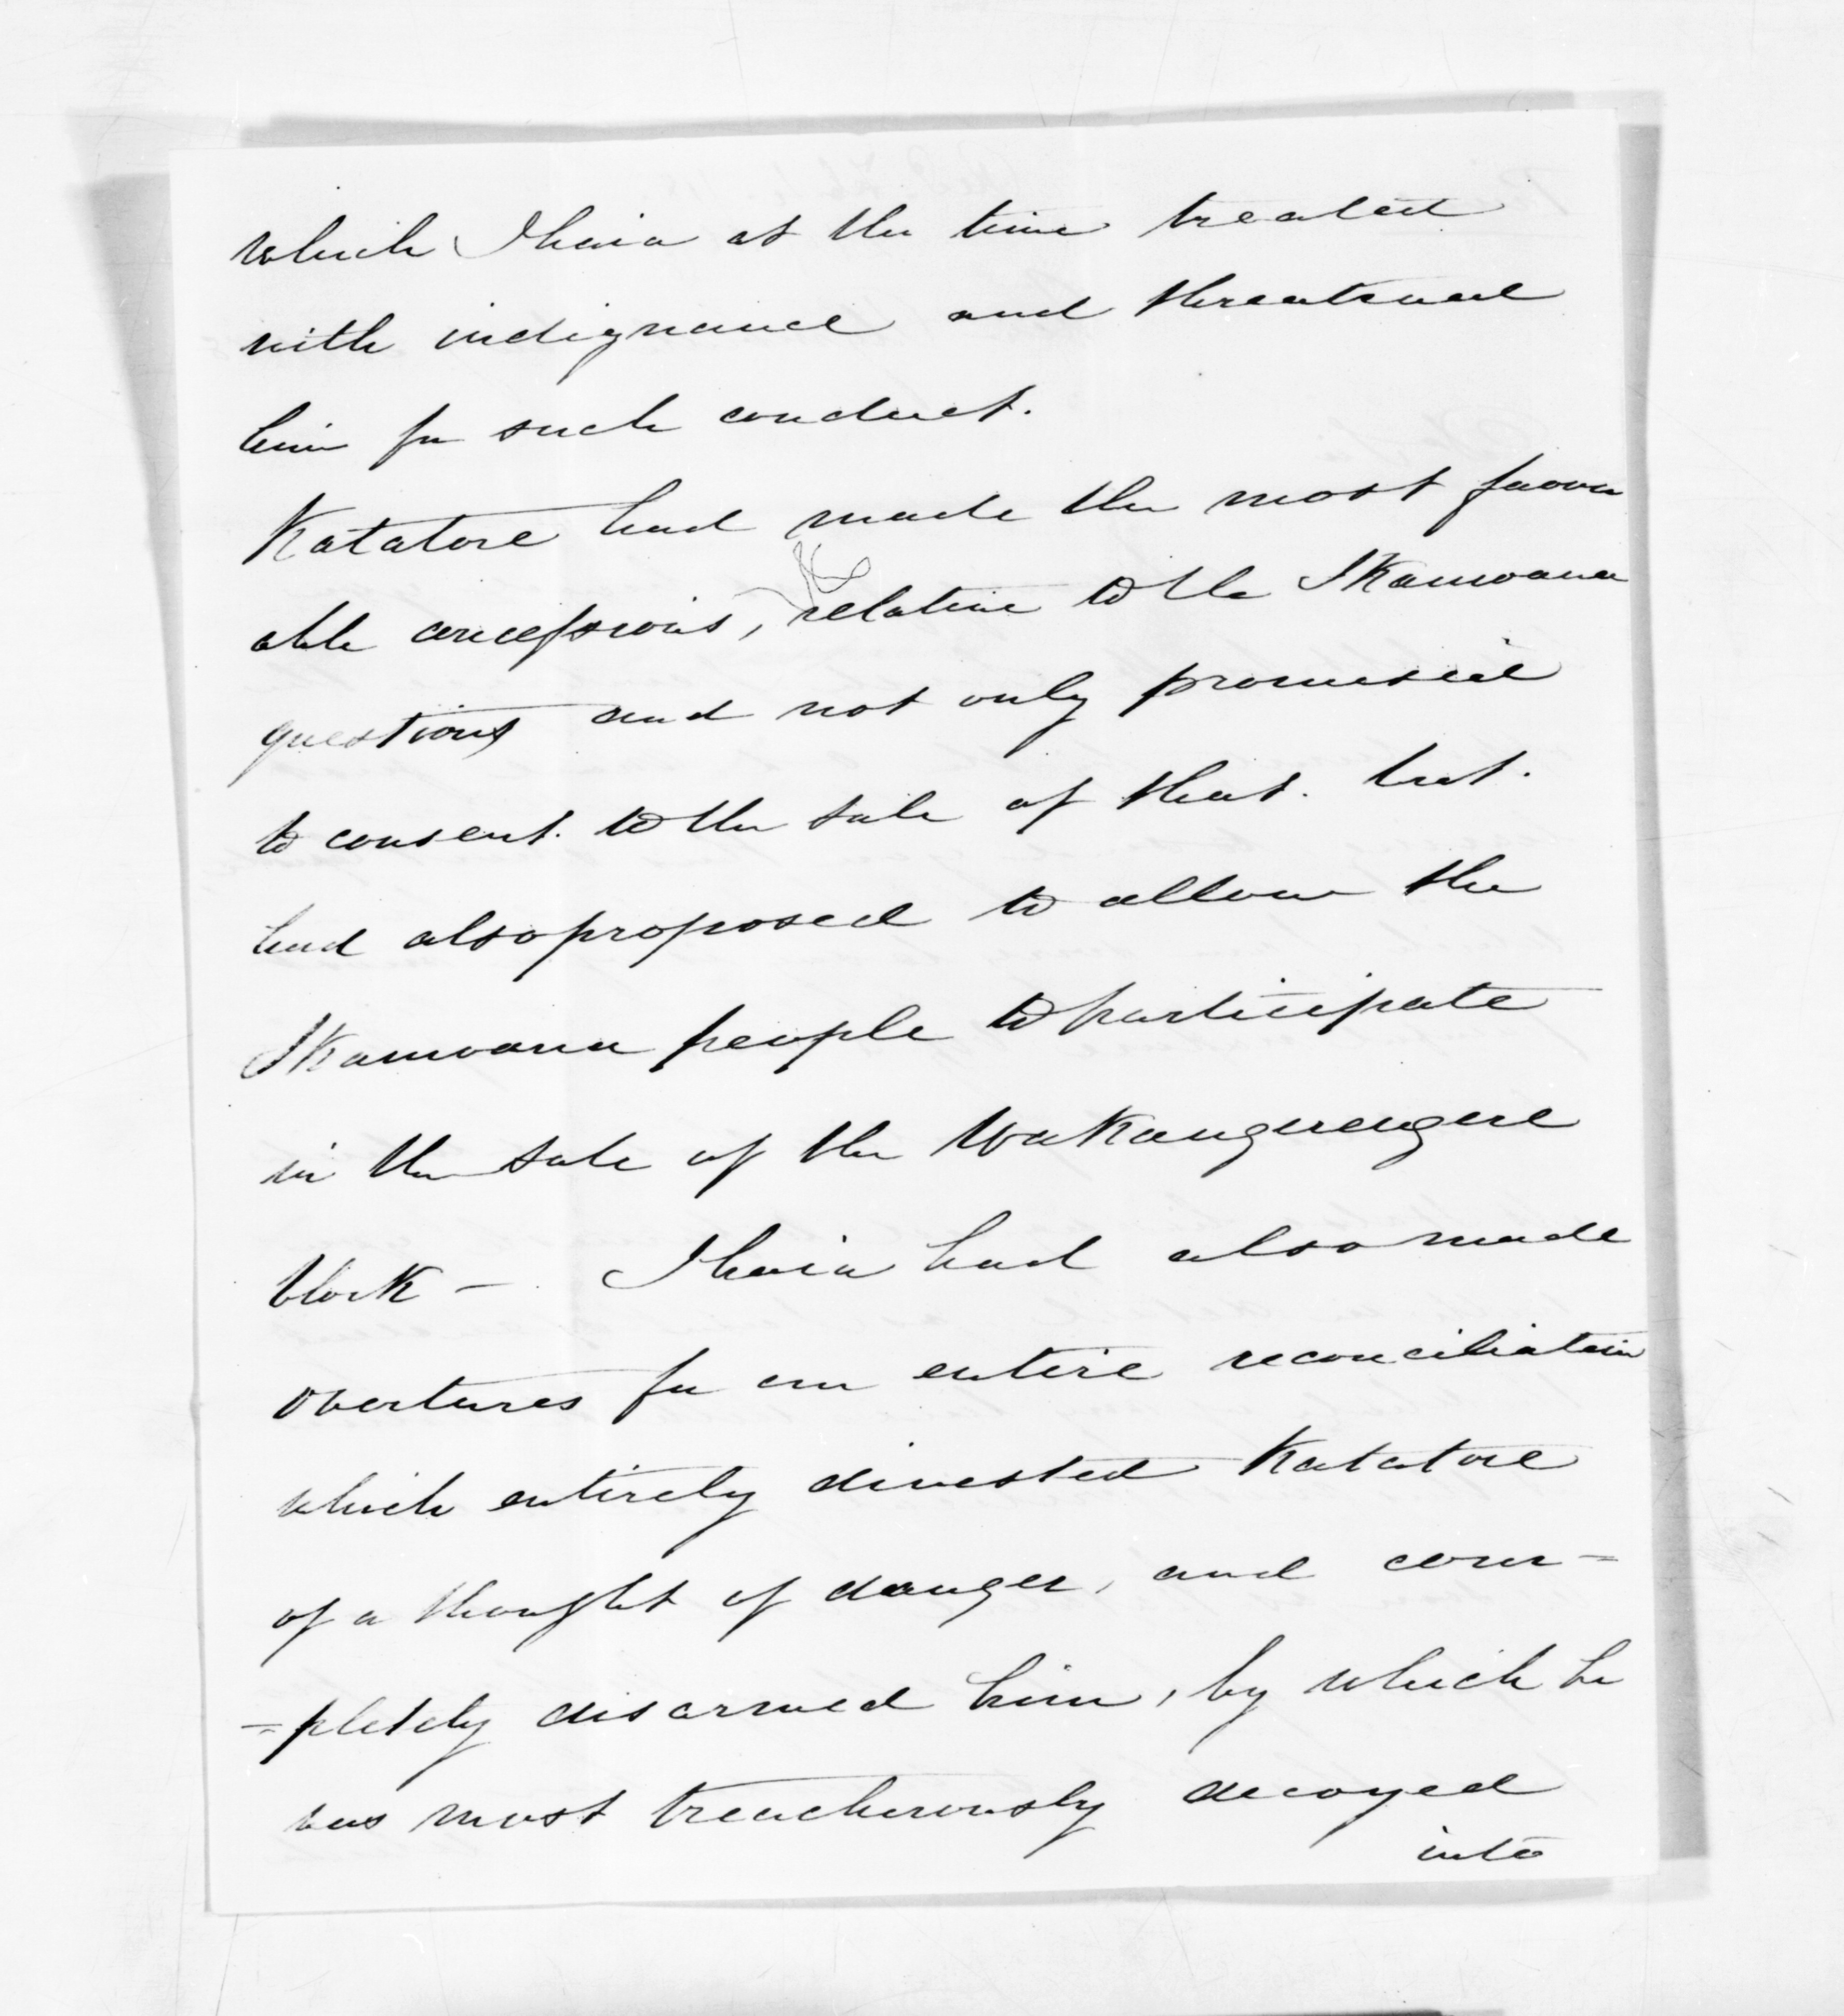 which Ihaia at the time treated
with indignance and threatened
him for such conduct.
Katatore had made the most favour
able concessions, relative to the Ikamoana
questions and not only promised
to consent to the sale of that. but.
had also proposed to allow the
Ikamoana people to participate
in the sale of the Wakangerengere
block — Ihaia had also made
overtures for an entire reconciliation
which entirely divested Katatore
of a thought of danger, and com=
=pletely disarmed him, by which he
was most treacherously decoyed
into